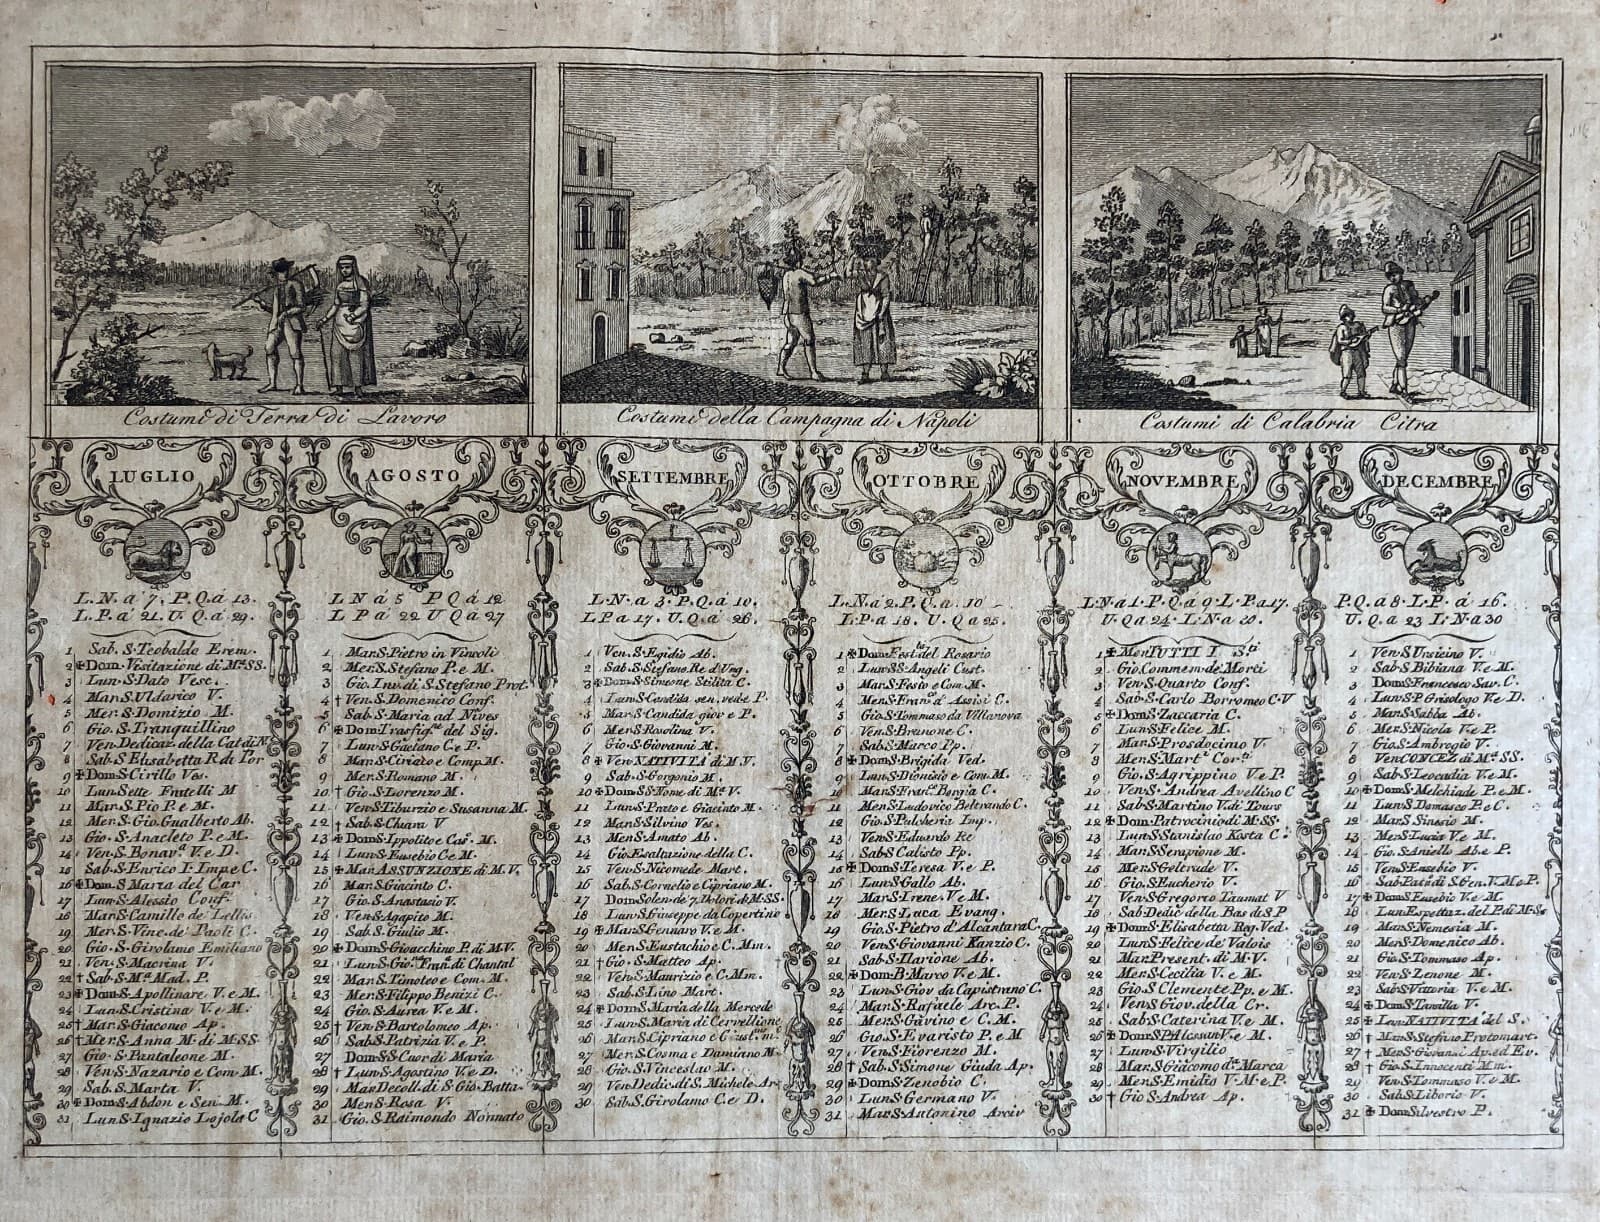 Costumi di Terra di Lavoro
Costumi della Campagna di Napoli
Costumi di Calabria Citra
LUGLIO
L. N. a 7. P. Q. a 13.
L. P. a 21. U. Q. a 29.
1 Sab. S. Teobaldo Erem.
2 ✠ Dom. Visitazione di Mª SS.
3 Lun. S. Dato Vesc.
4 Mar. S. Uldarico V.
5 Mer. S. Domizio M.
6 Gio. S. Tranquillino
7 Ven. Dedicaz. della Cat. di N.
8 Sab. S. Elisabetta R. di Por
9 ✠ Dom. S. Cirillo Ves.
10 Lun. Sette Fratelli M
11 Mar. S. Pio P. e M.
12 Mer. S. Gio. Gualberto Ab.
13 Gio. S. Anacleto P. e M.
14 Ven. S. Bonavª V. e D.
15 Sab. S. Enrico I. Imp. e C.
16 ✠ Dom. S. Maria del Car
17 Lun. S. Alessio Conf.
18 Mar. S. Camillo de Lellis
19 Mer. S. Vinc. de Paoli C.
20 Gio. S. Girolamo Emiliano
21 Ven. S. Macrina V.
22 † Sab. S. Mª Mad. P.
23 ✠ Dom. S. Apollinare V. e M.
24 Lun. S. Cristina V. e M.
25 † Mar. S. Giacomo Ap.
26 † Mer. S. Anna M. di M. SS.
27 Gio. S. Pantaleone M.
28 Ven. S. Nazario e Com. M.
29 Sab. S. Marta V.
30 ✠ Dom. S. Abdon e Sen. M.
31 Lun. S. Ignazio Lojola C
AGOSTO
L N á 5 P Q á 12
L P á 22 U Q á 27
1 Mar. S. Pietro in Vincoli
2 Mer. S. Stefano P. e M.
3 Gio. Inv. di S. Stefano Prot.
4 † Ven. S. Domenico Conf.
5 Sab. S. Maria ad Nives
6 ✠ Dom. Trasfig.ne del Sig.
7 Lun. S. Gaetano C. e P.
8 Mar. S. Ciriaco e Comp. M.
9 Mer. S. Romano M.
10 † Gio. S. Lorenzo M.
11 Ven. S. Tiburzio e Susanna M.
12 † Sab. S. Chiara V
13 ✠ Dom. S. Ippolito e Cas. M.
14 Lun. S. Eusebio C. e M.
15 ✠ Mar. ASSUNZIONE di M. V.
16 Mar. S. Giacinto C.
17 Gio. S. Anastasio V.
18 Ven. S. Agapito M.
19 Sab. S. Giulio M.
20 ✠ Dom. S. Gioacchino P. di M. V.
21 Lun. S. Gio. Franª di Chantal
22 Mar. S. Timoteo e Com. M.
23 Mer. S. Filippo Benizi C.
24 Gio. S. Aurea V. e M.
25 † Ven. S. Bartolomeo Ap.
26 Sab. S. Patrizia V. e P.
27 Dom. SS. Cuor di Maria
28 † Lun. S. Agostino V. e D.
29 Mar. Decoll. di S. Gio. Batta.
30 Mer. S. Rosa V.
31 Gio. S. Raimondo Nonnato
SETTEMBRE
L. N. a 3. P. Q. á 10.
L. P a 17. U. Q. á 26.
1 Ven. S. Egidio Ab.
2 Sab. S. Stefano Re d'Ung.
3 ✠ Dom. S. Simeone Stilita C.
4 Lun. S. Candida sen. ved. e P.
5 Mar. S. Candida giov e P.
6 Mer. S. Rosolina V.
7 Gio. S. Giovanni M.
8 ✠ Ven. NATIVITÀ di M. V.
9 Sab. S. Gorgonio M.
10 ✠ Dom. SS. Nome di Mª V.
11 Lun. S. Proto e Giacinto M.
12 Mar. S. Silvino Ves.
13 Mer. S. Amato Ab.
14 Gio. Esaltazione della C.
15 Ven. S. Nicomede Mart.
16 Sab. S. Cornelio e Cipriano M.
17 Dom. Solen. de' 7. Dolori di M. SS.
18 Lun. S. Giuseppe da Copertino
19 ✠ Mar. S. Gennaro V. e M.
20 Mer. S. Eustachio e C. Mm.
21 † Gio. S. Matteo Ap.
22 Ven. S. Maurizio e C. Mm.
23 Sab. S. Lino Mart.
24 ✠ Dom. S. Maria della Mercede
25 Lun. S. Maria di Cervellione
26 Mar. S. Cipriano e Giust. m.
27 Mer. S. Cosma e Damiano M.
28 Gio. S. Vinceslao M.
29 Ven. Dedic. di S. Michele Ar
30 Sab. S. Girolamo C. e D.
OTTOBRE
L. N. á 2. P. Q. a 10
L. P a 18. U. Q a 25.
1 ✠ Dom. Festa del Rosario
2 Lun. SS. Angeli Cust.
3 Mar. S. Fesio e Com. M.
4 Mer. S. Franco d' Assisi C.
5 Gio. S. Tommaso da Villanova
6 Ven. S. Brunone C.
7 Sab. S. Marco Pp.
8 ✠ Dom. S. Brigida Ved.
9 Lun. S. Dionisio e Com. M.
10 Mar. S. Franco Borgia C.
11 Mer. S. Ludovico Beltrando C.
12 Gio. S. Pulcheria Imp.
13 Ven. S. Eduardo Re
14 Sab. S. Calisto Pp.
15 ✠ Dom. S. Teresa V. e P.
16 Lun. S. Gallo Ab.
17 Mar. S. Irene V. e M.
18 Mer. S. Luca Evang.
19 Gio. S. Pietro d'Alcantara C.
20 Ven. S. Giovanni Kanzio C.
21 Sab. S. Ilarione Ab.
22 ✠ Dom. B. Marco V. e M.
23 Lun. S. Giov da Capistrano C.
24 Mar. S. Rafaele Arc. P.
25 Mer. S. Gavino e C. M.
26 Gio. S. Evaristo P. e M
27 Ven. S. Fiorenzo M.
28 † Sab. S. Simone Giuda Ap.
29 ✠ Dom. S. Zenobio C.
30 Lun. S. Germano V.
31 Mar. S. Antonino Arciv
NOVEMBRE
L. N a 1. P. Q. á 9. L. P. a 17.
U. Q a 24. L. N. a 30.
1 ✠ Mer. TUTTI I S.ti
2 Gio. Commem. de' Morti
3 Ven. S. Quarto Conf.
4 Sab. S. Carlo Borromeo C. V
5 ✠ Dom. S. Zaccaria C.
6 Lun. S. Felice M.
7 Mar. S. Prosdocimo V.
8 Mer. S. Mart Cor.ti
9 Gio. S. Agrippino V. e P.
10 Ven. S. Andrea Avellino C
11 Sab. S. Martino V. di Tours
12 ✠ Dom. Patrocinio di M. SS.
13 Lun. S. Stanislao Kosta C.
14 Mar. S. Serapione M.
15 Mer. S. Geltrude V.
16 Gio. S. Eucherio V.
17 Ven. S. Gregorio Taumat V
18 Sab. Dedic della Bas di S. P
19 ✠ Dom. S. Elisabetta Reg. Ved.
20 Lun. S. Felice de Valois
21 Mar. Present. di M. V.
22 Mer. S. Cecilia V. e M.
23 Gio. S. Clemente Pp. e M.
24 Ven. S. Giov. della Cr.
25 Sab. S. Caterina V. e M.
26 ✠ Dom. S. P. Alessan V. e M.
27 Lun. S. Virgilio
28 Mar. S. Giacomo dª Marca
29 Mer. S. Emidio V. M. e P.
30 † Gio S. Andrea Ap.
DECEMBRE
P. Q. a 8. L. P. á 16.
U. Q. a 23 L. N. a 30
1 Ven. S. Ursicino V.
2 Sab. S. Bibiana V. e M.
3 Dom. S. Francesco Sav. C.
4 Lun. S. P. Grisologo V. e D.
5 Mar. S. Sabba Ab.
6 Mer. S. Nicola V. e P.
7 Gio. S. Ambrogio V.
8 Ven. CONCEZ di Mª SS.
9 Sab. S. Leocadia V. e M.
10 ✠ Dom. S. Melchiade P. e M.
11 Lun. S. Damaso P. e C.
12 Mar. S. Sinesio M.
13 Mer. S. Lucia V. e M.
14 Gio. S. Aniello Ab. e P.
15 Ven. S. Eusebio V.
16 Sab. Patr. di S. Gen. V. M. e P.
17 ✠ Dom. S. Eusebio V. e M.
18 Lun. Espettaz. del P. di M. SS
19 Mar. S. Nemesia M.
20 Mer. S. Domenico Ab.
21 Gio. S. Tommaso Ap.
22 Ven. S. Zenone M.
23 Sab. S. Vittoria V. e M.
24 ✠ Dom. S. Tarsilla V.
25 ✠ Lun. NATIVITÀ del S.
26 † Mar. S. Stefano Protomart.
27 † Mer. S. Giovanni Ap. ed Ev.
28 † Gio. S. Innocenti Mm.
29 Ven. S. Tommaso V. e M.
30 Sab. S. Liborio V.
31 ✠ Dom. S. Silvestro P.